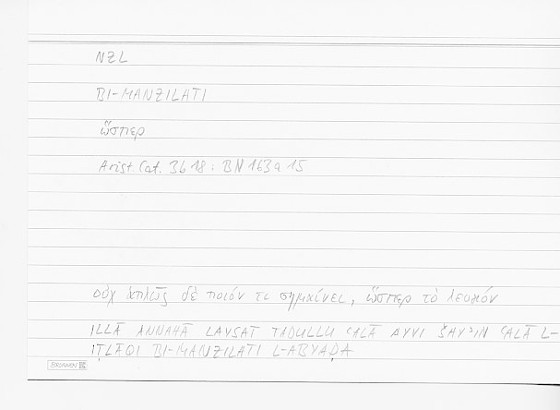 NZL
BI-MANZILATI
ὥσπερ
Arist. Cat. 3b18 : BN 163a15
οὐχ ἁπλῶς δὲ ποιόν τι σημαίνει, ὥσπερ τὸ λευκόν
ILLĀ ANNAHĀ LAYSAT TADULLU ʿALĀ AYYI ŠAYʾIN ʿALĀ L-
IṬLĀQI BI-MANZILATI L-ABYAḌA